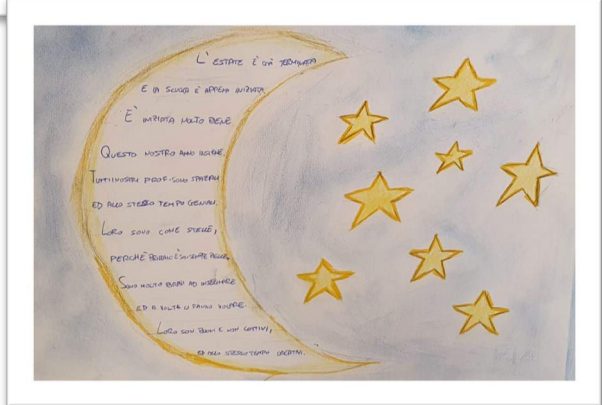 L'ESTATE È GIÀ TERMINATA
E LA SCUOLA È APPENA INIZIATA.
È INIZIATA MOLTO BENE
QUESTO NOSTRO ANNO INSIEME.
TUTTI I NOSTRI PROF. SONO SPAZIALI
ED ALLO STESSO TEMPO GENIALI.
LORO SONO COME STELLE,
PERCHÉ BRILLANO E SON SEMPRE BELLE.
SONO MOLTO BRAVI AD INSEGNARE
ED A VOLTE CI FANNO VOLARE.
LORO SON BUONI E NON CATTIVI,
ED ALLO STESSO TEMPO